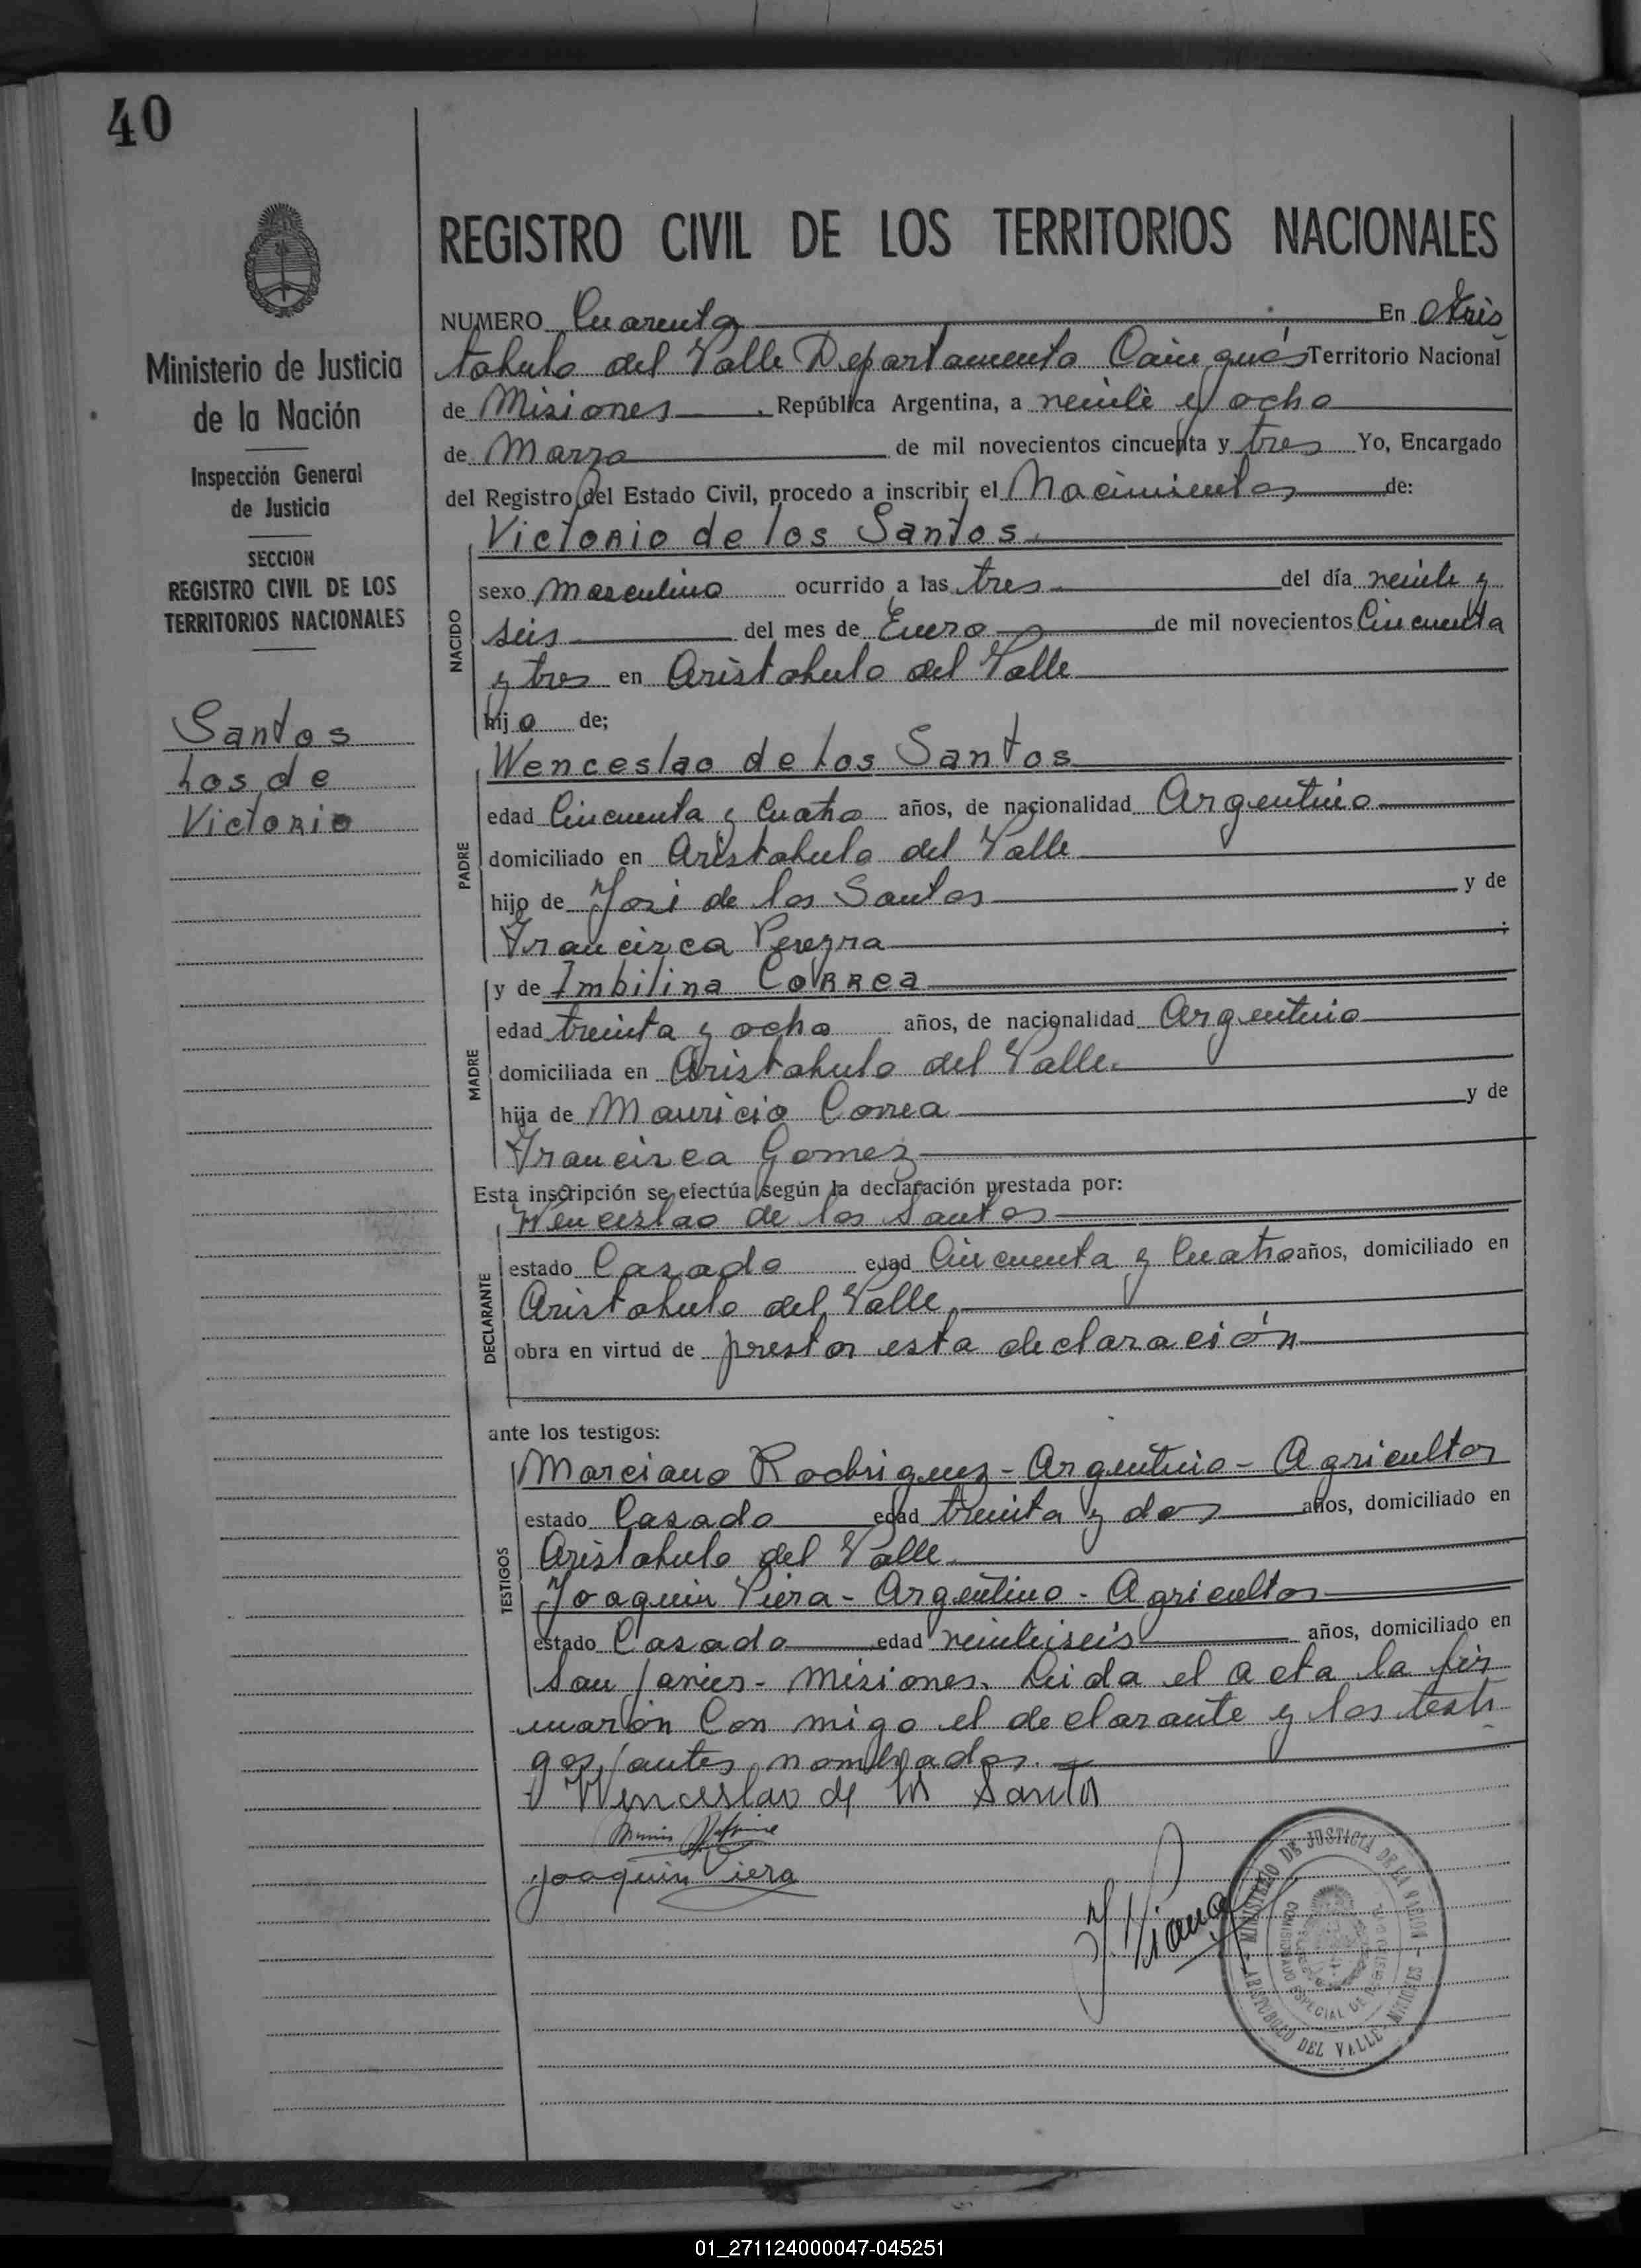 40
REGISTRO CIVIL DE LOS TERRITORIOS NACIONALES
Ministerio de Justicia
de la Nación
Inspección General
de Justicia
SECCION
REGISTRO CIVIL DE LOS
TERRITORIOS NACIONALES
Santos
Los de
Victorio
NUMERO Cuarenta En Aris
tobulo del Valle Departamento Cainguás Territorio Nacional
de Misiones , República Argentina, a veinte y ocho
de Marzo de mil novecientos cincuenta y tres Yo, Encargado
del Registro del Estado Civil, procedo a inscribir el Nacimiento de:
Victorio de los Santos
NACIDO
sexo masculino ocurrido a las tres del día veinte y
seis del mes de Enero de mil novecientos Cincuenta
y tres en Aristobulo del Valle
hijo de;
Wenceslao de Los Santos
PADRE
edad Cincuenta y Cuatro años, de nacionalidad Argentino
domiciliado en Aristobulo del Valle
hijo de José de los Santos y de
Francisca Pereyra ;
y de Imbilina Correa
MADRE
edad treinta y ocho años, de nacionalidad Argentino
domiciliada en Aristobulo del Valle.
hija de Mauricio Correa y de
Francisca Gomez
Esta inscripción se efectúa según la declaración prestada por:
Wenceslao de los Santos
DECLARANTE
estado Casado edad Cincuenta y Cuatro años, domiciliado en
Aristobulo del Valle,
obra en virtud de prestar esta declaración
ante los testigos:
TESTIGOS
Marciano Rodriguez - Argentino - Agricultor
estado Casado edad treinta y dos años, domiciliado en
Aristobulo del Valle
Joaquin Viera - Argentino - Agricultor
estado Casado edad veintiseis años, domiciliado en
San Javier - Misiones. Leida el acta la fir
marón Con migo el declarante y los testi
gos antes nombrados.
Wenceslao de los Santos
Joaquin Viera
MINISTERIO DE JUSTICIA DE LA NACION
ARISTOBULO DEL VALLE - MISIONES
COMISIONADO ESPECIAL DE
01_271124000047-045251